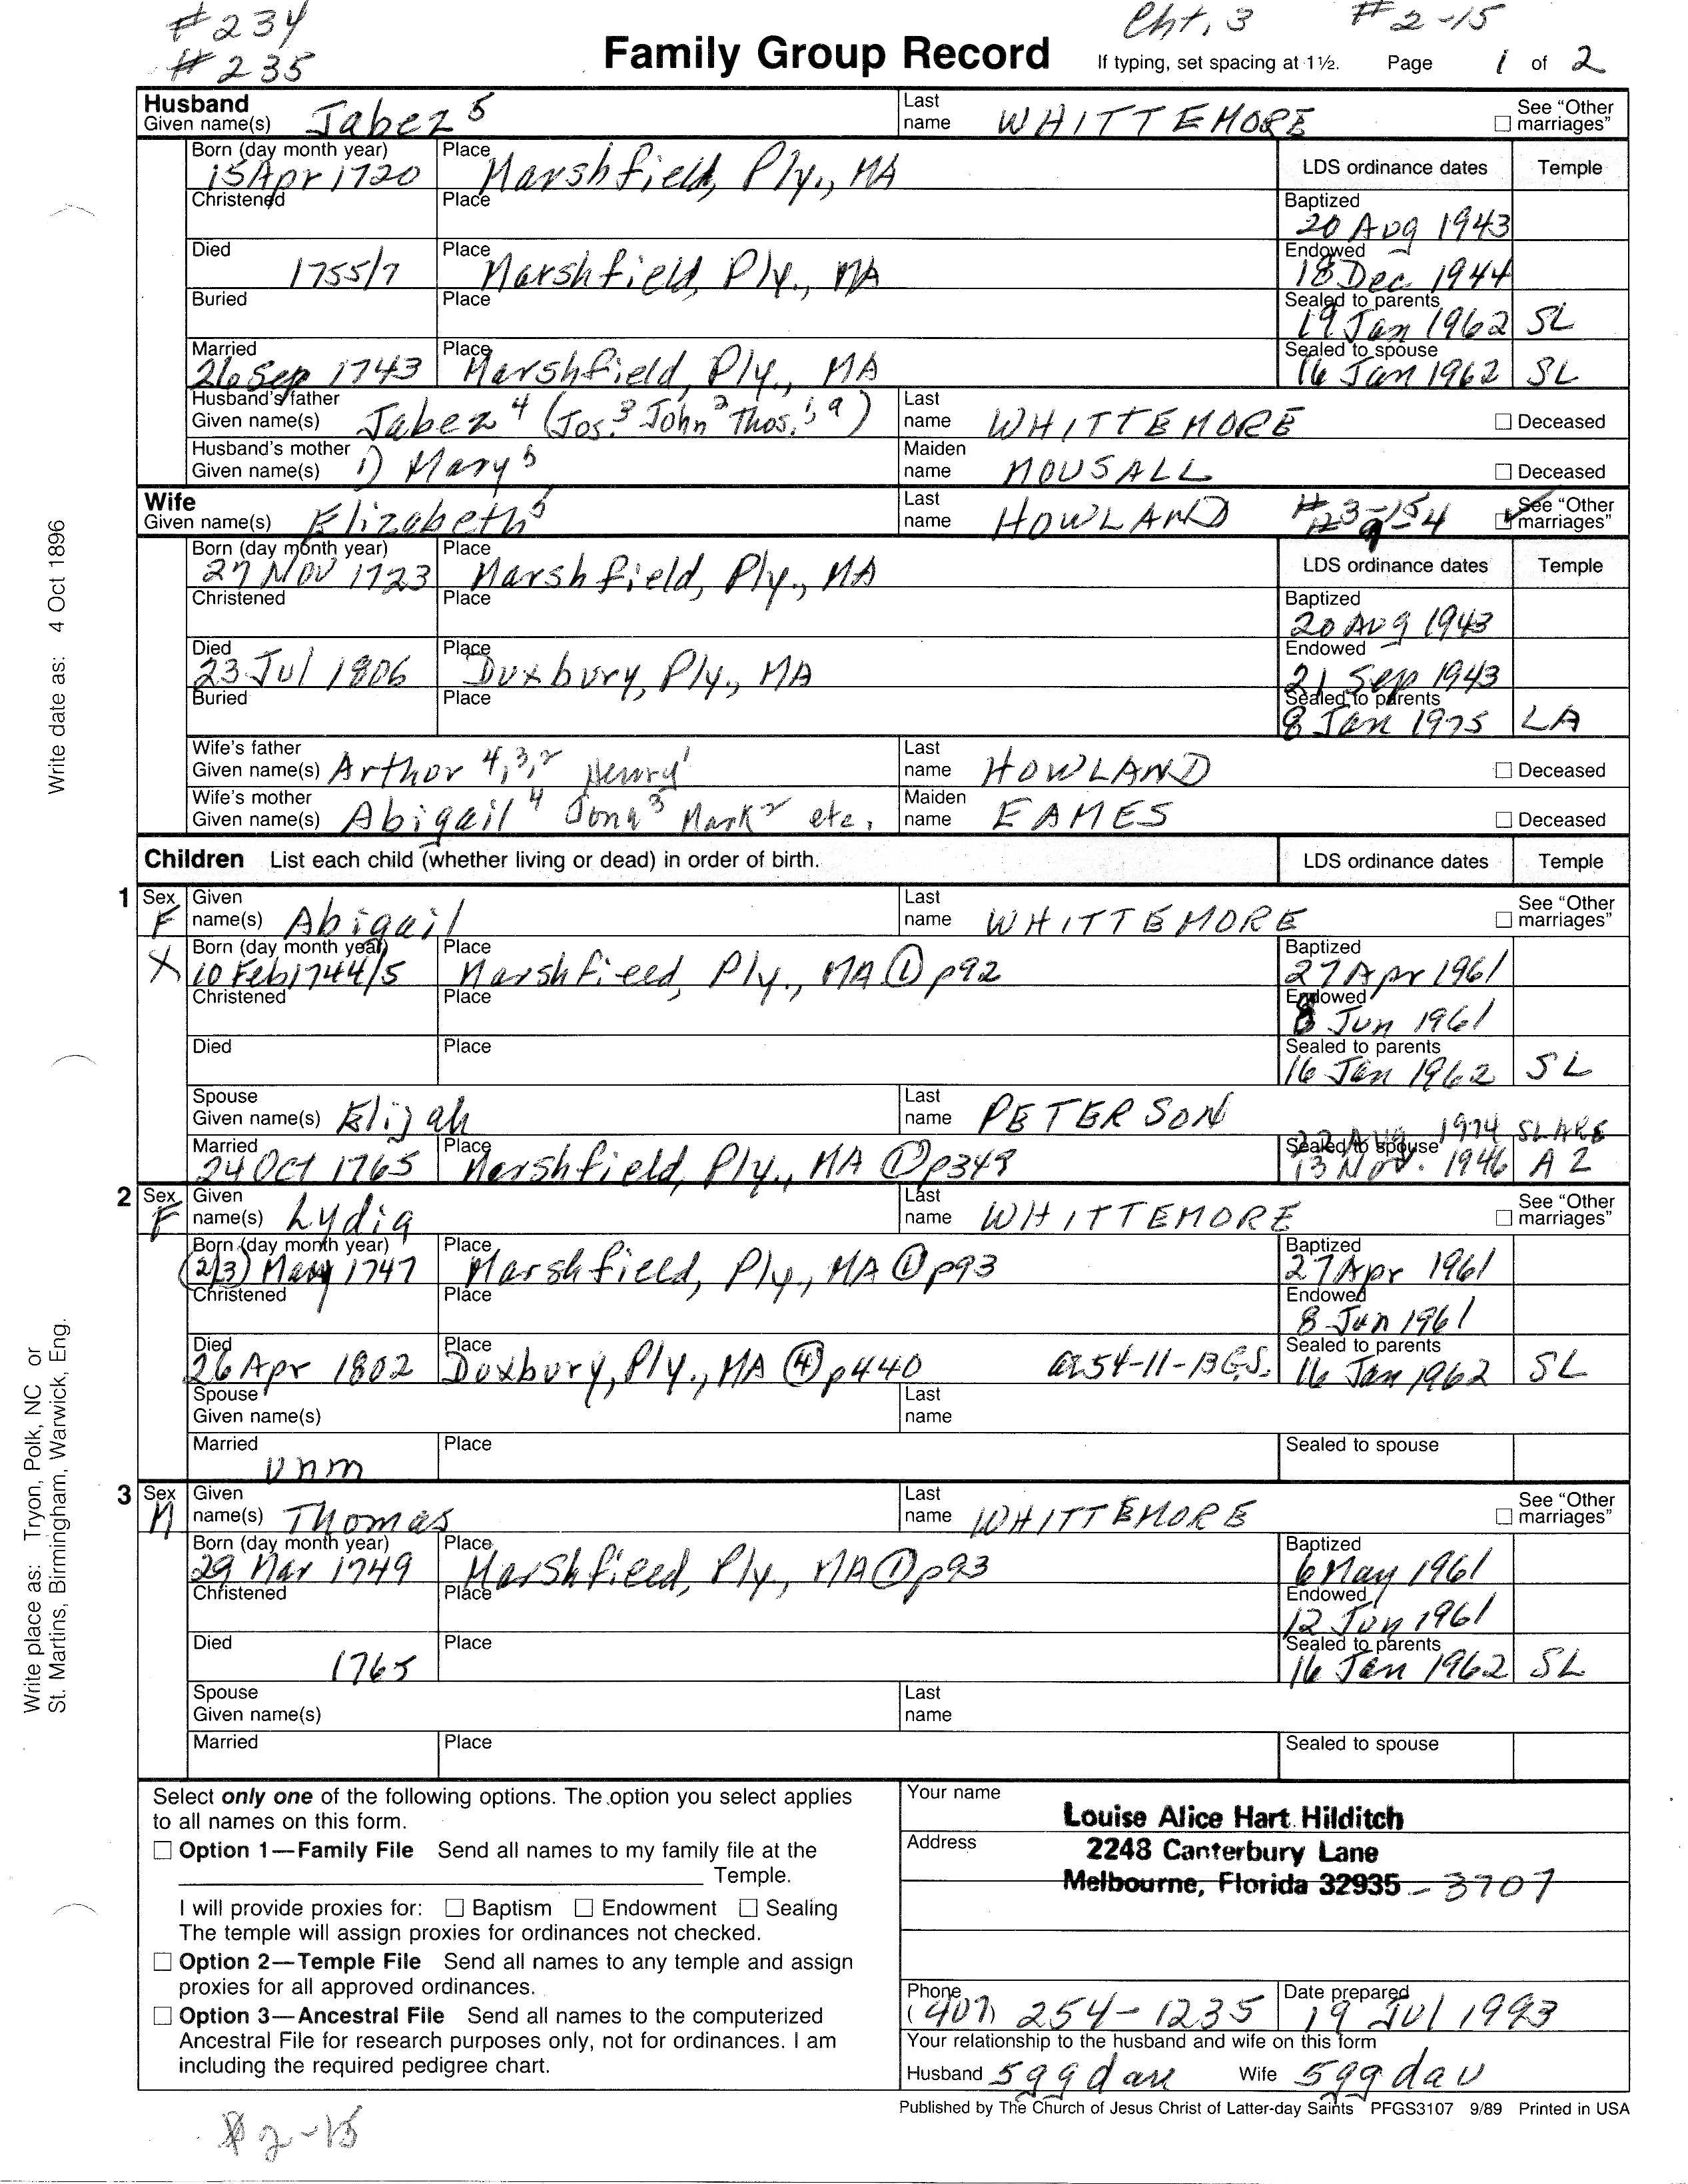 #234
#235
Cht, 3 #2-15
Family Group Record If typing, set spacing at 1½. Page 1 of 2
Husband
Given name(s) Jabez 5 Last name WHITTEMORE ☐ See "Other marriages"
Born (day month year) 15 Apr 1720 Place Marshfield, Ply., MA LDS ordinance dates Temple
Christened Place Baptized 20 Aug 1943
Died 1755/7 Place Marshfield, Ply., MA Endowed 18 Dec 1944
Buried Place Sealed to parents 19 Jan 1962 SL
Married 26 Sep 1743 Place Marshfield, Ply., MA Sealed to spouse 16 Jan 1962 SL
Husband's father
Given name(s) Jabez 4 (Jos.3 John2 Thos.1, a) Last name WHITTEMORE ☐ Deceased
Husband's mother
Given name(s) 1) Mary 5 Maiden name MOUSALL ☐ Deceased
Wife
Given name(s) Elizabeth 5 Last name HOWLAND See "Other marriages"
Born (day month year) 27 Nov 1723 Place Marshfield, Ply., MA LDS ordinance dates Temple
Christened Place Baptized 20 Aug 1943
Died 23 Jul 1806 Place Duxbury, Ply., MA Endowed 21 Sep 1943
Buried Place Sealed to parents 8 Jan 1975 LA
Wife's father
Given name(s) Arthor 4,3,2 Henry 1 Last name HOWLAND ☐ Deceased
Wife's mother
Given name(s) Abigail 4 Jona 3 Mark 2 etc. Maiden name EAMES ☐ Deceased
Children List each child (whether living or dead) in order of birth. LDS ordinance dates Temple
1 Sex F Given name(s) Abigail Last name WHITTEMORE ☐ See "Other marriages"
X Born (day month year) 10 Feb 1744/5 Place Marshfield, Ply., MA ① p92 Baptized 27 Apr 1961
Christened Place Endowed 8 Jun 1961
Died Place Sealed to parents 16 Jan 1962 SL
Spouse
Given name(s) Elijah Last name PETERSON 1974 SLAKE
Married 24 Oct 1765 Place Marshfield, Ply., MA ① p349 Sealed to spouse 13 Nov. 1946 AZ
2 Sex F Given name(s) Lydia Last name WHITTEMORE ☐ See "Other marriages"
Born (day month year) (2/3) May 1747 Place Marshfield, Ply., MA ① p93 Baptized 27 Apr 1961
Christened Place Endowed 8 Jun 1961
Died 26 Apr 1802 Place Duxbury, Ply., MA ④ p440 ae 54-11-13 G.S. Sealed to parents 16 Jan 1962 SL
Spouse
Given name(s) Last name
Married unm Place Sealed to spouse
3 Sex M Given name(s) Thomas Last name WHITTEMORE ☐ See "Other marriages"
Born (day month year) 29 Mar 1749 Place Marshfield, Ply., MA ① p93 Baptized 6 May 1961
Christened Place Endowed 12 Jun 1961
Died 1765 Place Sealed to parents 16 Jan 1962 SL
Spouse
Given name(s) Last name
Married Place Sealed to spouse
Select only one of the following options. The option you select applies
to all names on this form.
☐ Option 1—Family File Send all names to my family file at the
Temple.
I will provide proxies for: ☐ Baptism ☐ Endowment ☐ Sealing
The temple will assign proxies for ordinances not checked.
☐ Option 2—Temple File Send all names to any temple and assign
proxies for all approved ordinances.
☐ Option 3—Ancestral File Send all names to the computerized
Ancestral File for research purposes only, not for ordinances. I am
including the required pedigree chart.
Your name Louise Alice Hart Hilditch
Address 2248 Canterbury Lane
Melbourne, Florida 32935-3707
Phone (407) 254-1235 Date prepared 19 Jul 1993
Your relationship to the husband and wife on this form
Husband 5ggdau Wife 5ggdau
Published by The Church of Jesus Christ of Latter-day Saints PFGS3107 9/89 Printed in USA
#2-15
Write date as: 4 Oct 1896
Write place as: Tryon, Polk, NC or
St. Martins, Birmingham, Warwick, Eng.